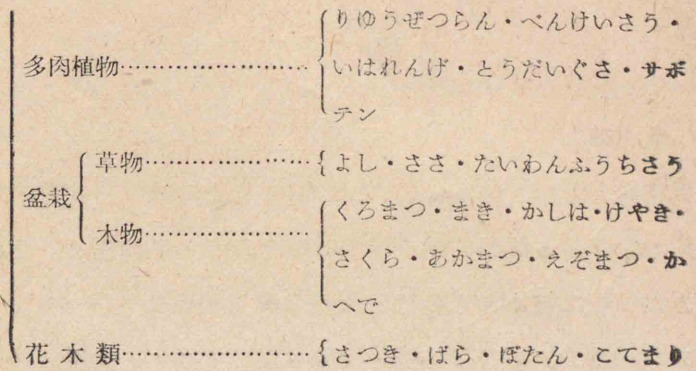 りゆうぜつらん・べんけいさう・
多肉植物……………………いはれんげ・とうだいぐさ・サボ
テン
草物…………………よし・ささ・たいわんふうちさう
盆栽
くろまつ・まき・かしは・けやき・
木物…………………
さくら・あかまつ・えぞまつ・か
へで
花木類……………………さつき・ばら・ぼたん・こてまり